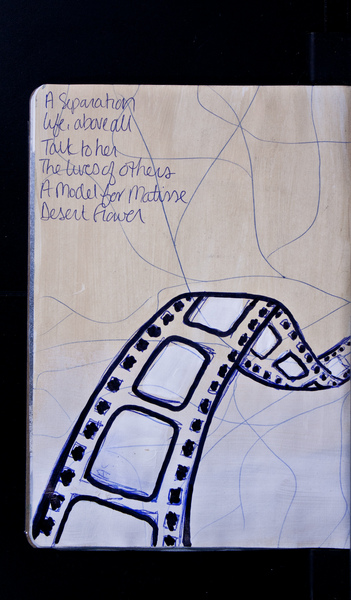 A Separation
Life, above all
Talk to her
The Lives of Others
A Model for Matisse
Desert Flower